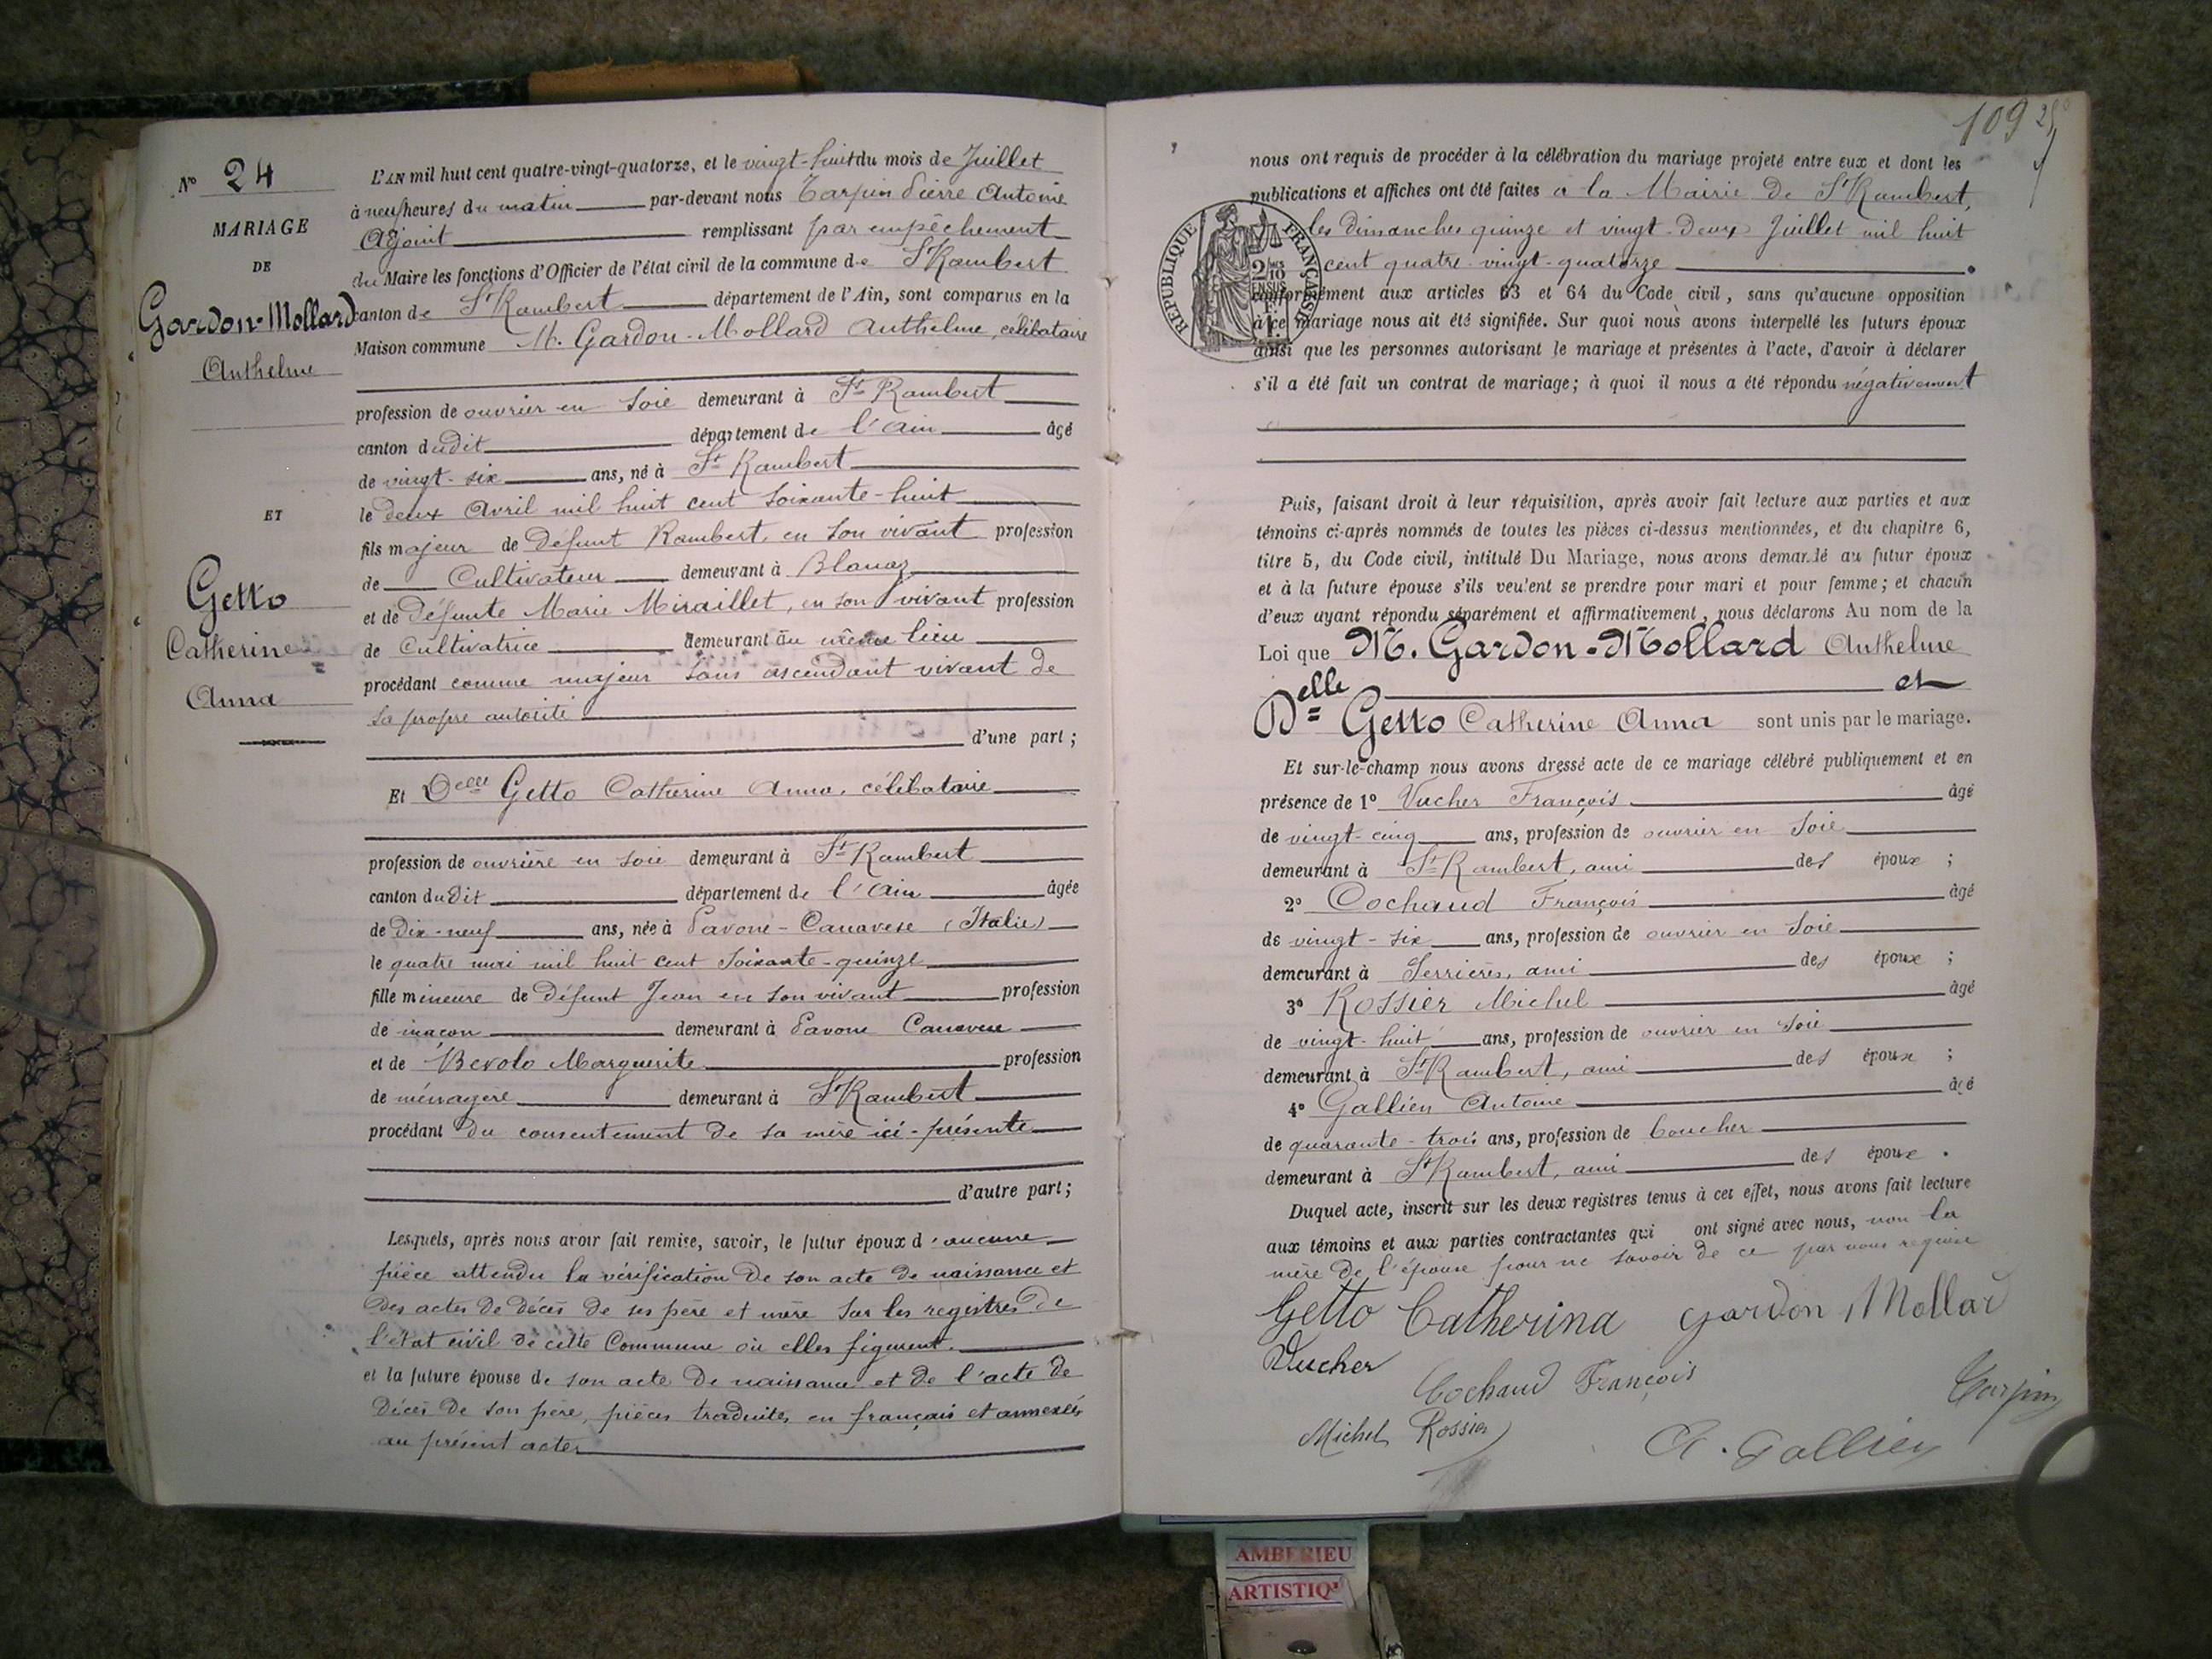 N° 24
MARIAGE
DE
Gardon-Mollard
Anthelme
ET
Getto
Catherine
Anna
L'AN mil huit cent quatre-vingt-quatorze, et le vingt-huit du mois de Juillet
à neuf heures du matin par-devant nous Tarpin Pierre Antoine
Adjoint remplissant par empêchement
du Maire les fonctions d'Officier de l'état civil de la commune de St Rambert
canton de St Rambert département de l'Ain, sont comparus en la
Maison commune M. Gardon-Mollard Anthelme, célibataire
profession de ouvrier en soie demeurant à St Rambert
canton dudit département de l'Ain âgé
de vingt-six ans, né à St Rambert
le deux Avril mil huit cent soixante-huit
fils majeur de défunt Rambert, en son vivant profession
de Cultivateur demeurant à Blanaz
et de défunte Marie Miraillet, en son vivant profession
de Cultivatrice demeurant au même lieu
procédant comme majeur sans ascendant vivant de
sa propre autorité
d'une part ;
Et Delle Getto Catherine Anna, célibataire
profession de ouvrière en soie demeurant à St Rambert
canton dudit département de l'Ain âgée
de dix-neuf ans, née à Pavone-Canavese (Italie)
le quatre mai mil huit cent soixante-quinze
fille mineure de défunt Jean en son vivant profession
de maçon demeurant à Pavone Canavese
et de Bevolo Marguerite profession
de ménagère demeurant à St Rambert
procédant du consentement de sa mère ici-présente
d'autre part ;
Lesquels, après nous avoir fait remise, savoir, le futur époux d'aucune
pièce attendu la vérification de son acte de naissance et
des actes de décès de ses père et mère sur les registres de
l'état civil de cette Commune où elles figurent.
et la future épouse de son acte de naissance et de l'acte de
décès de son père, pièces traduites en français et annexées
au présent acte
109
nous ont requis de procéder à la célébration du mariage projeté entre eux et dont les
publications et affiches ont été faites à la Mairie de St Rambert,
les dimanches quinze et vingt-deux Juillet mil huit
cent quatre-vingt-quatorze
RÉPUBLIQUE FRANÇAISE
2/10 EN SUS
conformément aux articles 63 et 64 du Code civil, sans qu'aucune opposition
à ce mariage nous ait été signifiée. Sur quoi nous avons interpellé les futurs époux
ainsi que les personnes autorisant le mariage et présentes à l'acte, d'avoir à déclarer
s'il a été fait un contrat de mariage ; à quoi il nous a été répondu négativement
Puis, faisant droit à leur réquisition, après avoir fait lecture aux parties et aux
témoins ci-après nommés de toutes les pièces ci-dessus mentionnées, et du chapitre 6,
titre 5, du Code civil, intitulé Du Mariage, nous avons demandé au futur époux
et à la future épouse s'ils veulent se prendre pour mari et pour femme ; et chacun
d'eux ayant répondu séparément et affirmativement, nous déclarons Au nom de la
Loi que M. Gardon-Mollard Anthelme
et
Delle Getto Catherine Anna sont unis par le mariage.
Et sur-le-champ nous avons dressé acte de ce mariage célébré publiquement et en
présence de 1° Vucher François âgé
de vingt-cinq ans, profession de ouvrier en soie
demeurant à St Rambert, ami des époux ;
2° Cochaud François âgé
de vingt-six ans, profession de ouvrier en soie
demeurant à Serrières, ami des époux ;
3° Rossier Michel âgé
de vingt-huit ans, profession de ouvrier en soie
demeurant à St Rambert, ami des époux ;
4° Gallien Antoine âgé
de quarante-trois ans, profession de boucher
demeurant à St Rambert, ami des époux.
Duquel acte, inscrit sur les deux registres tenus à cet effet, nous avons fait lecture
aux témoins et aux parties contractantes qui ont signé avec nous, non la
mère de l'épouse pour ne savoir de ce par nous requise
Getto Catherina Gardon Mollard
Vucher
Cochaud François
Tarpin
Michel Rossier
A. Gallien
AMBERIEU
ARTISTIQ